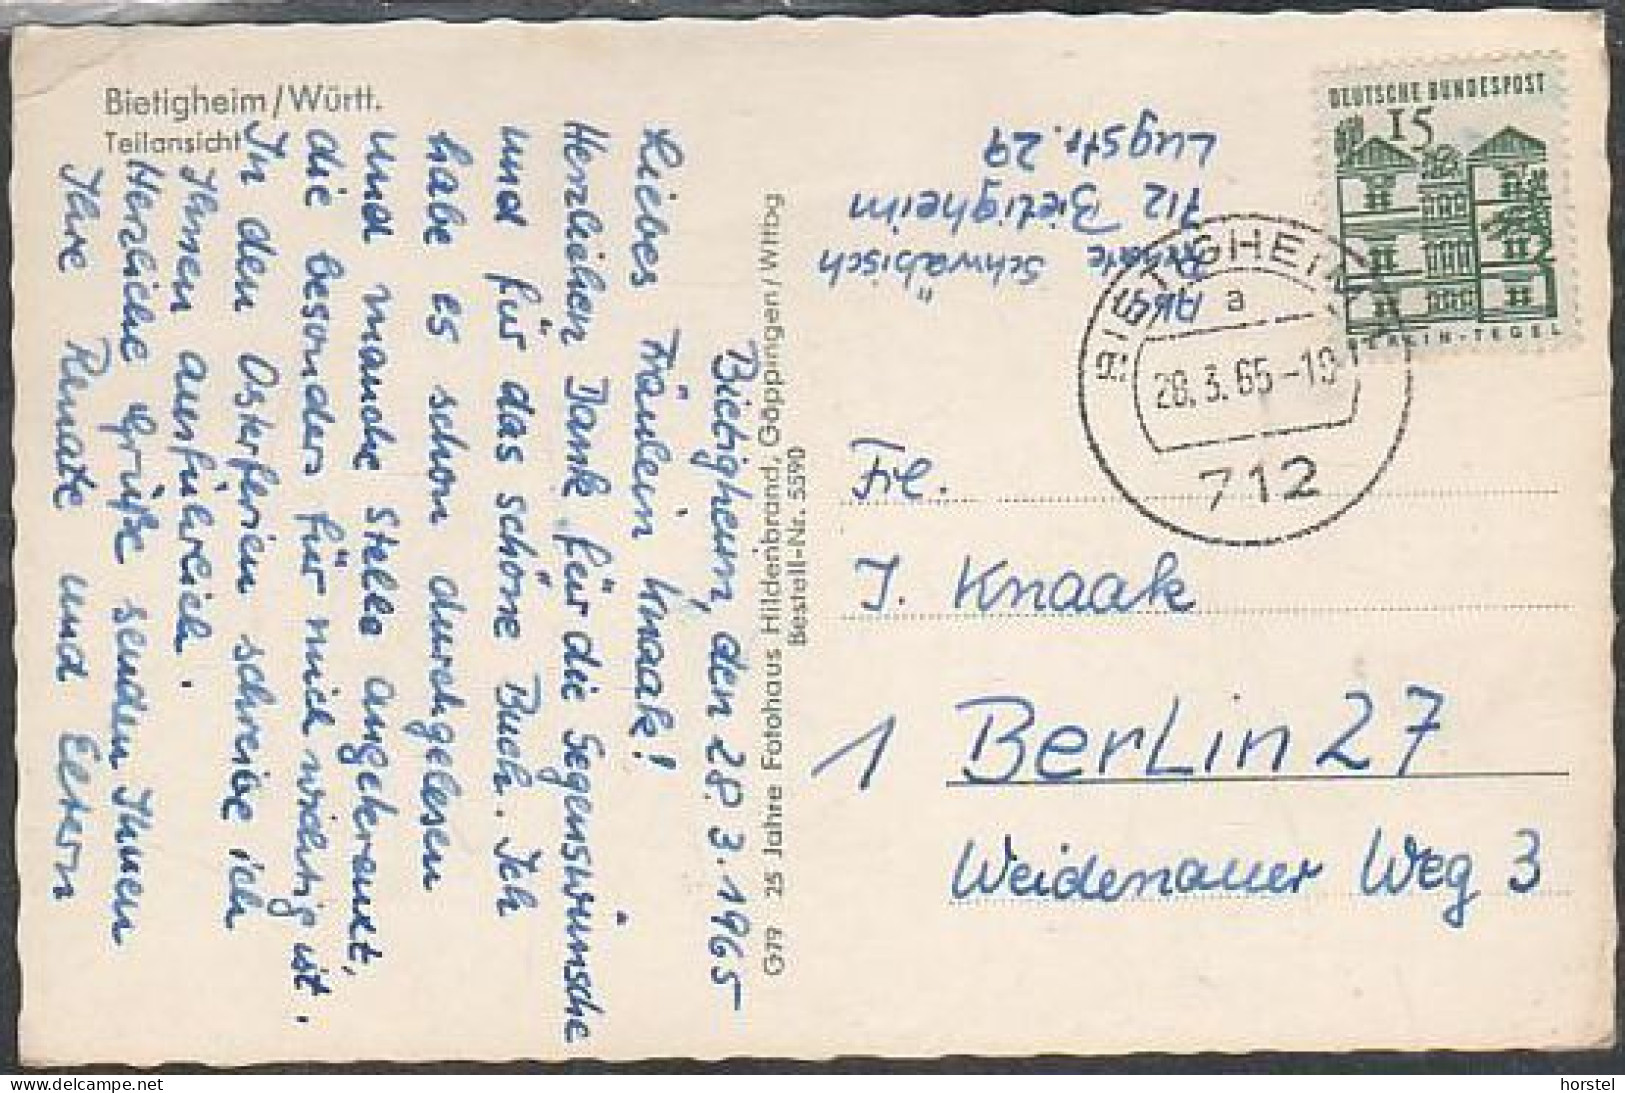 Bietigheim/Württ.
Teilansicht
Bietigheim, den 28.3.1965
Liebes Fräulein Knaak!
Herzlichen Dank für die Segenswünsche
und für das schöne Buch. Ich
habe es schon durchgelesen
und manche Stelle angekreuzt,
die besonders für mich wichtig ist.
In den Osterferien schreibe ich
Ihnen ausführlich.
Herzliche Grüße senden Ihnen
Ihre Renate und Eltern
G 79 25 Jahre Fotohaus Hildenbrand, Göppingen/Wttbg
Bestell-Nr. 5590
Abs.
Renate Schwäbisch
712 Bietigheim
Lugstr. 29
DEUTSCHE BUNDESPOST
15
BERLIN-TEGEL
BIETIGHEIM
a
28.3.65-19
712
Frl.
J. Knaak
1 Berlin 27
Weidenauer Weg 3
horstel